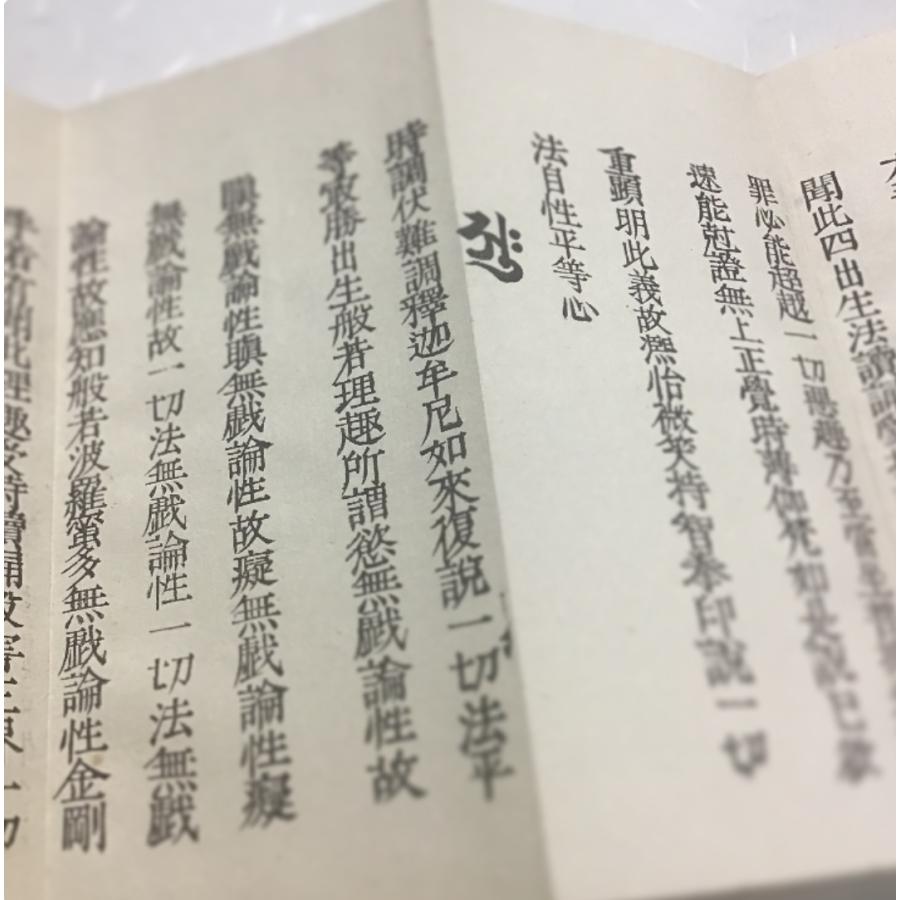 聞此四出生法讀誦受持
罪必能超越一切惡趣乃至當坐
速能尅證無上正覺時薄伽梵如是說已欲
重顯明此義故凞怡微笑持智拳印說一切
法自性平等心
時調伏難調釋迦牟尼如來復說一切法平
等冣勝出生般若理趣所謂慾無戲論性故
瞋無戲論性瞋無戲論性故癡無戲論性癡
無戲論性故一切法無戲論性一切法無戲
論性故應知般若波羅蜜多無戲論性金剛
手若有聞此理趣受持讀誦設害三界一切